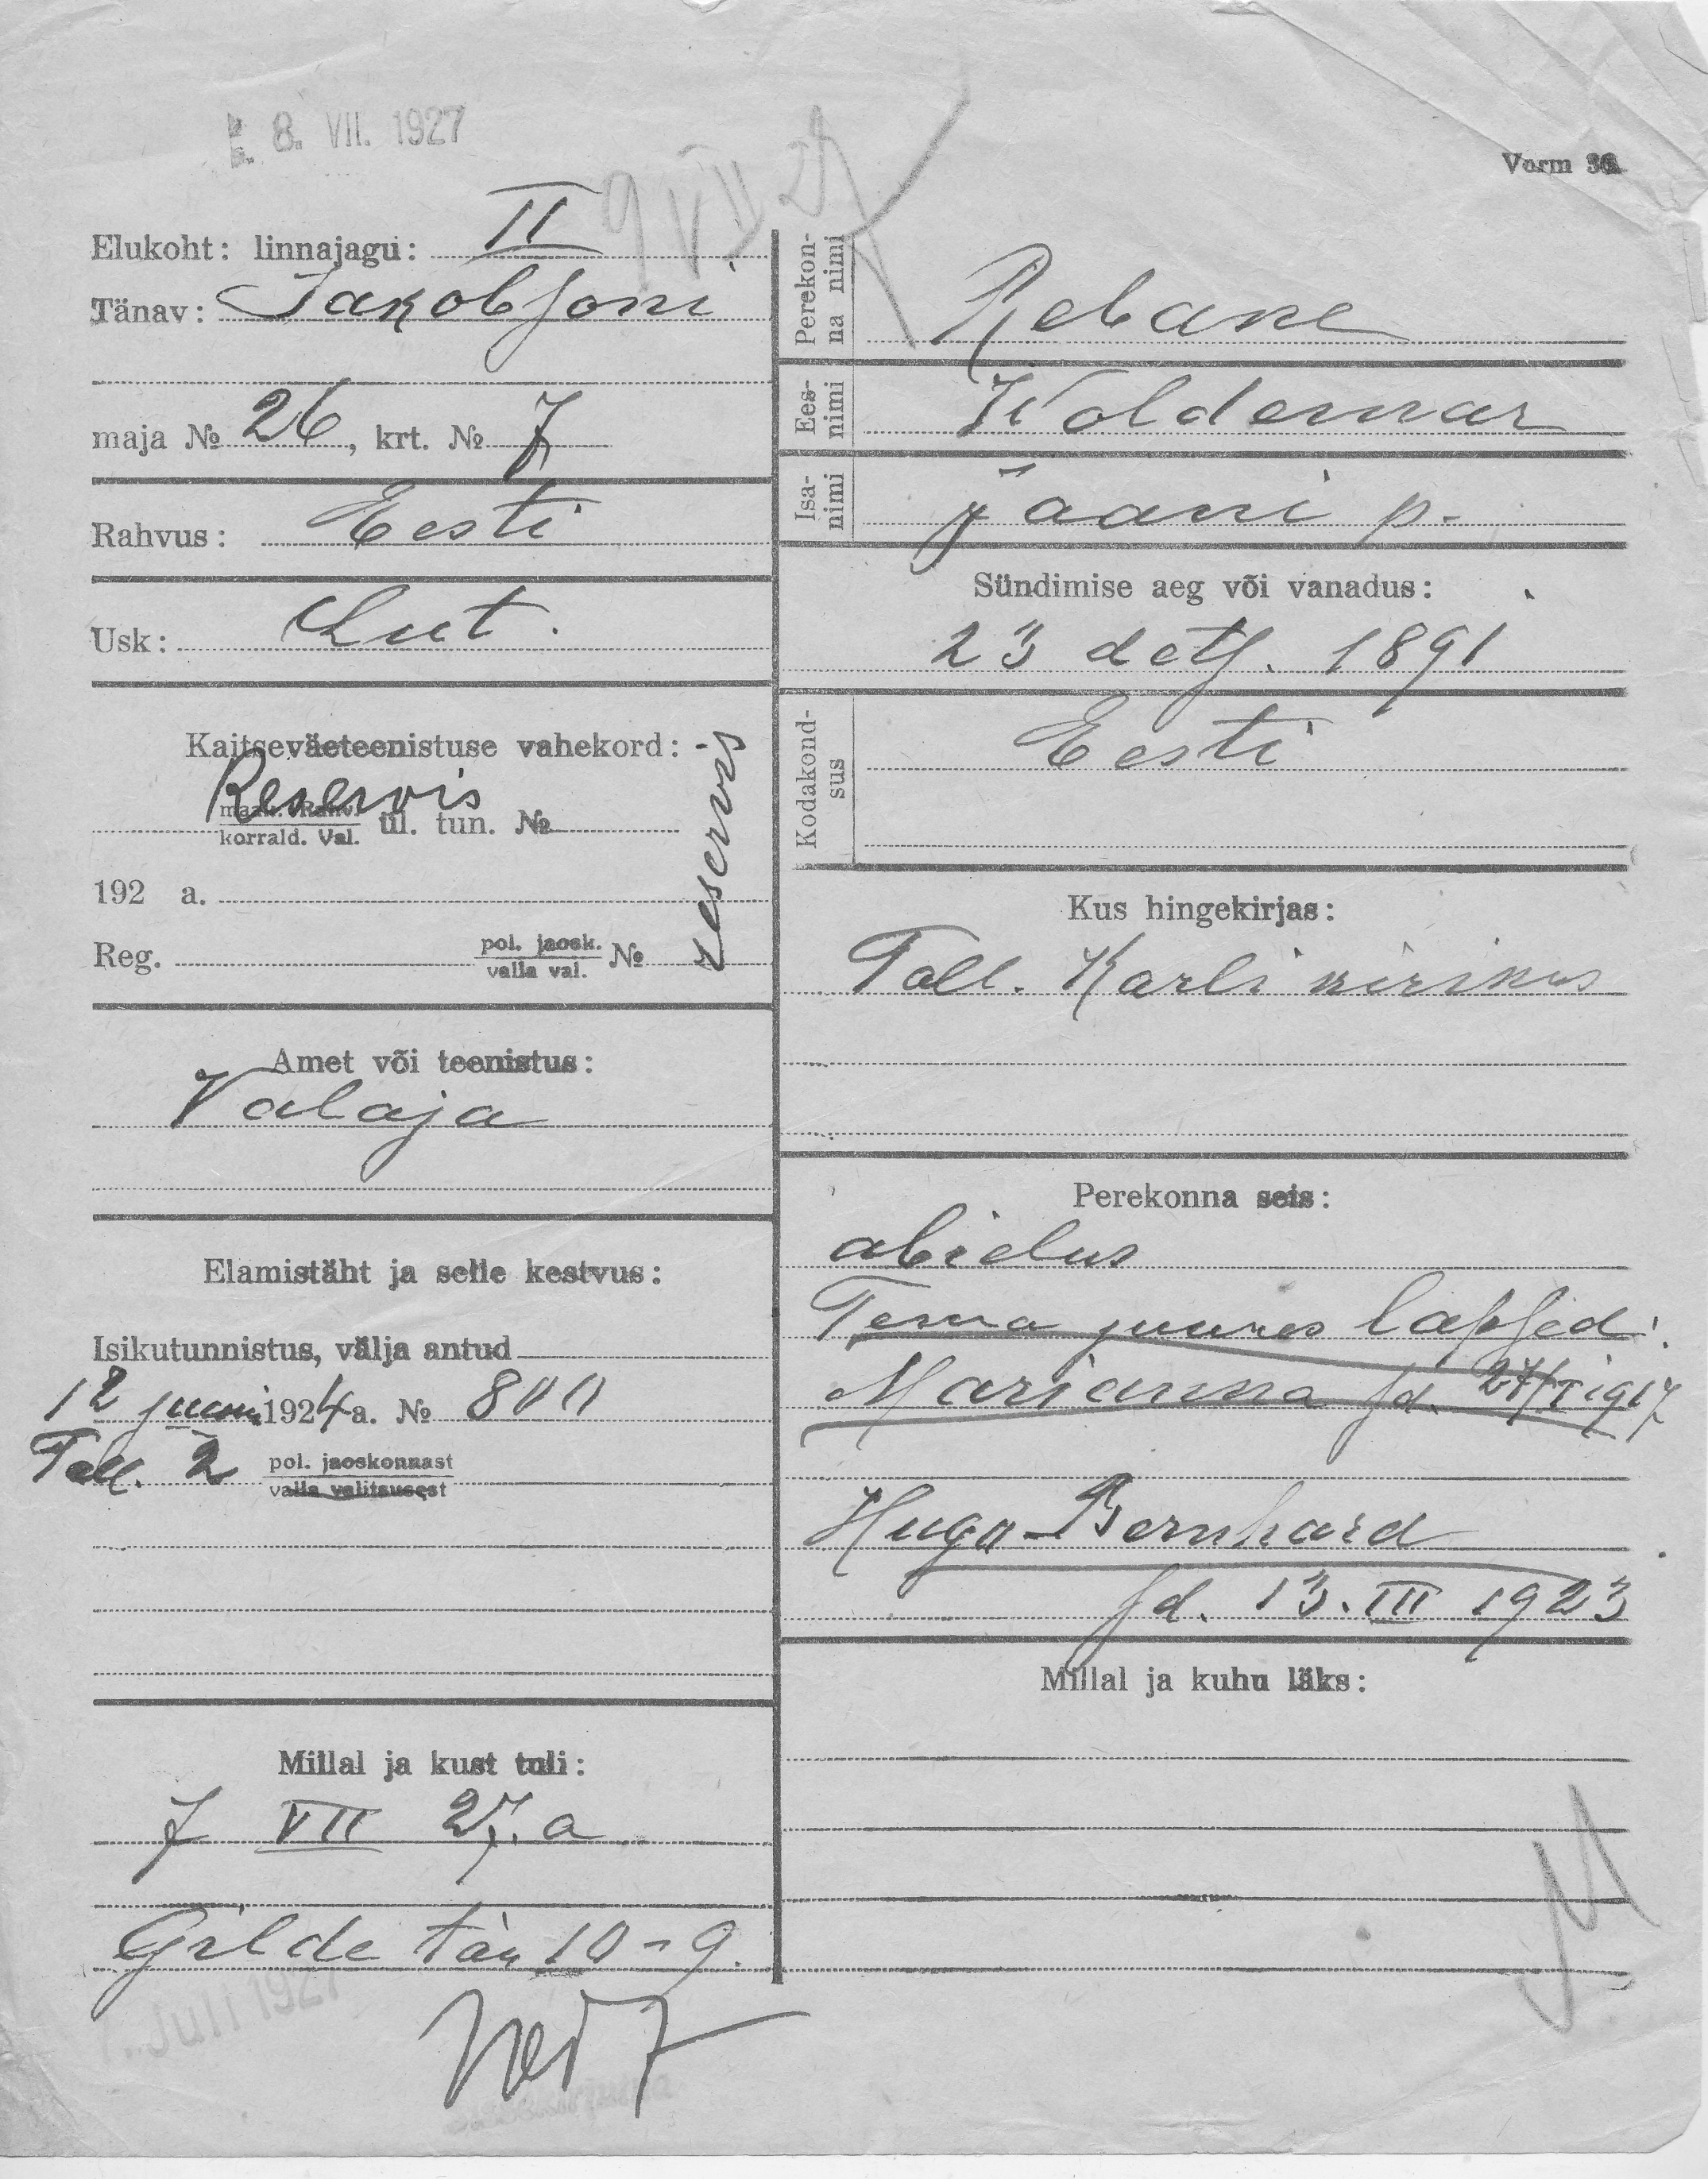 8. VII. 1927
9 VII 27
Vorm 36a
Elukoht: linnajagu: II
Tänav: Jakobsoni
maja № 26, krt. № 7
Rahvus: Eesti
Usk: Lut.
Kaitseväeteenistuse vahekord:
Reservis
korrald. Val. ül. tun. №
reservis
192 a.
Reg. pol. jaosk. №
valla val.
Amet või teenistus:
Valaja
Elamistäht ja selle kestvus:
Isikutunnistus, välja antud
12 juuni 1924 a. № 800
Tall. 2 pol. jaoskonnast
valla valitsusest
Millal ja kust tuli:
7 VII 27. a
Gilde tän 10-9.
7. Juli 1927
Perekonna nimi
Rebane
Eesnimi
Woldemar
Isanimi
Jaani p.
Sündimise aeg või vanadus:
23 dets. 1891
Kodakondsus
Eesti
Kus hingekirjas:
Tall. Karli kirikus
Perekonna seis:
abielus
Tema juures lapsed:
Marianna sd. 1917
Hugo-Bernhard
sd. 13. III 1923
Millal ja kuhu läks: